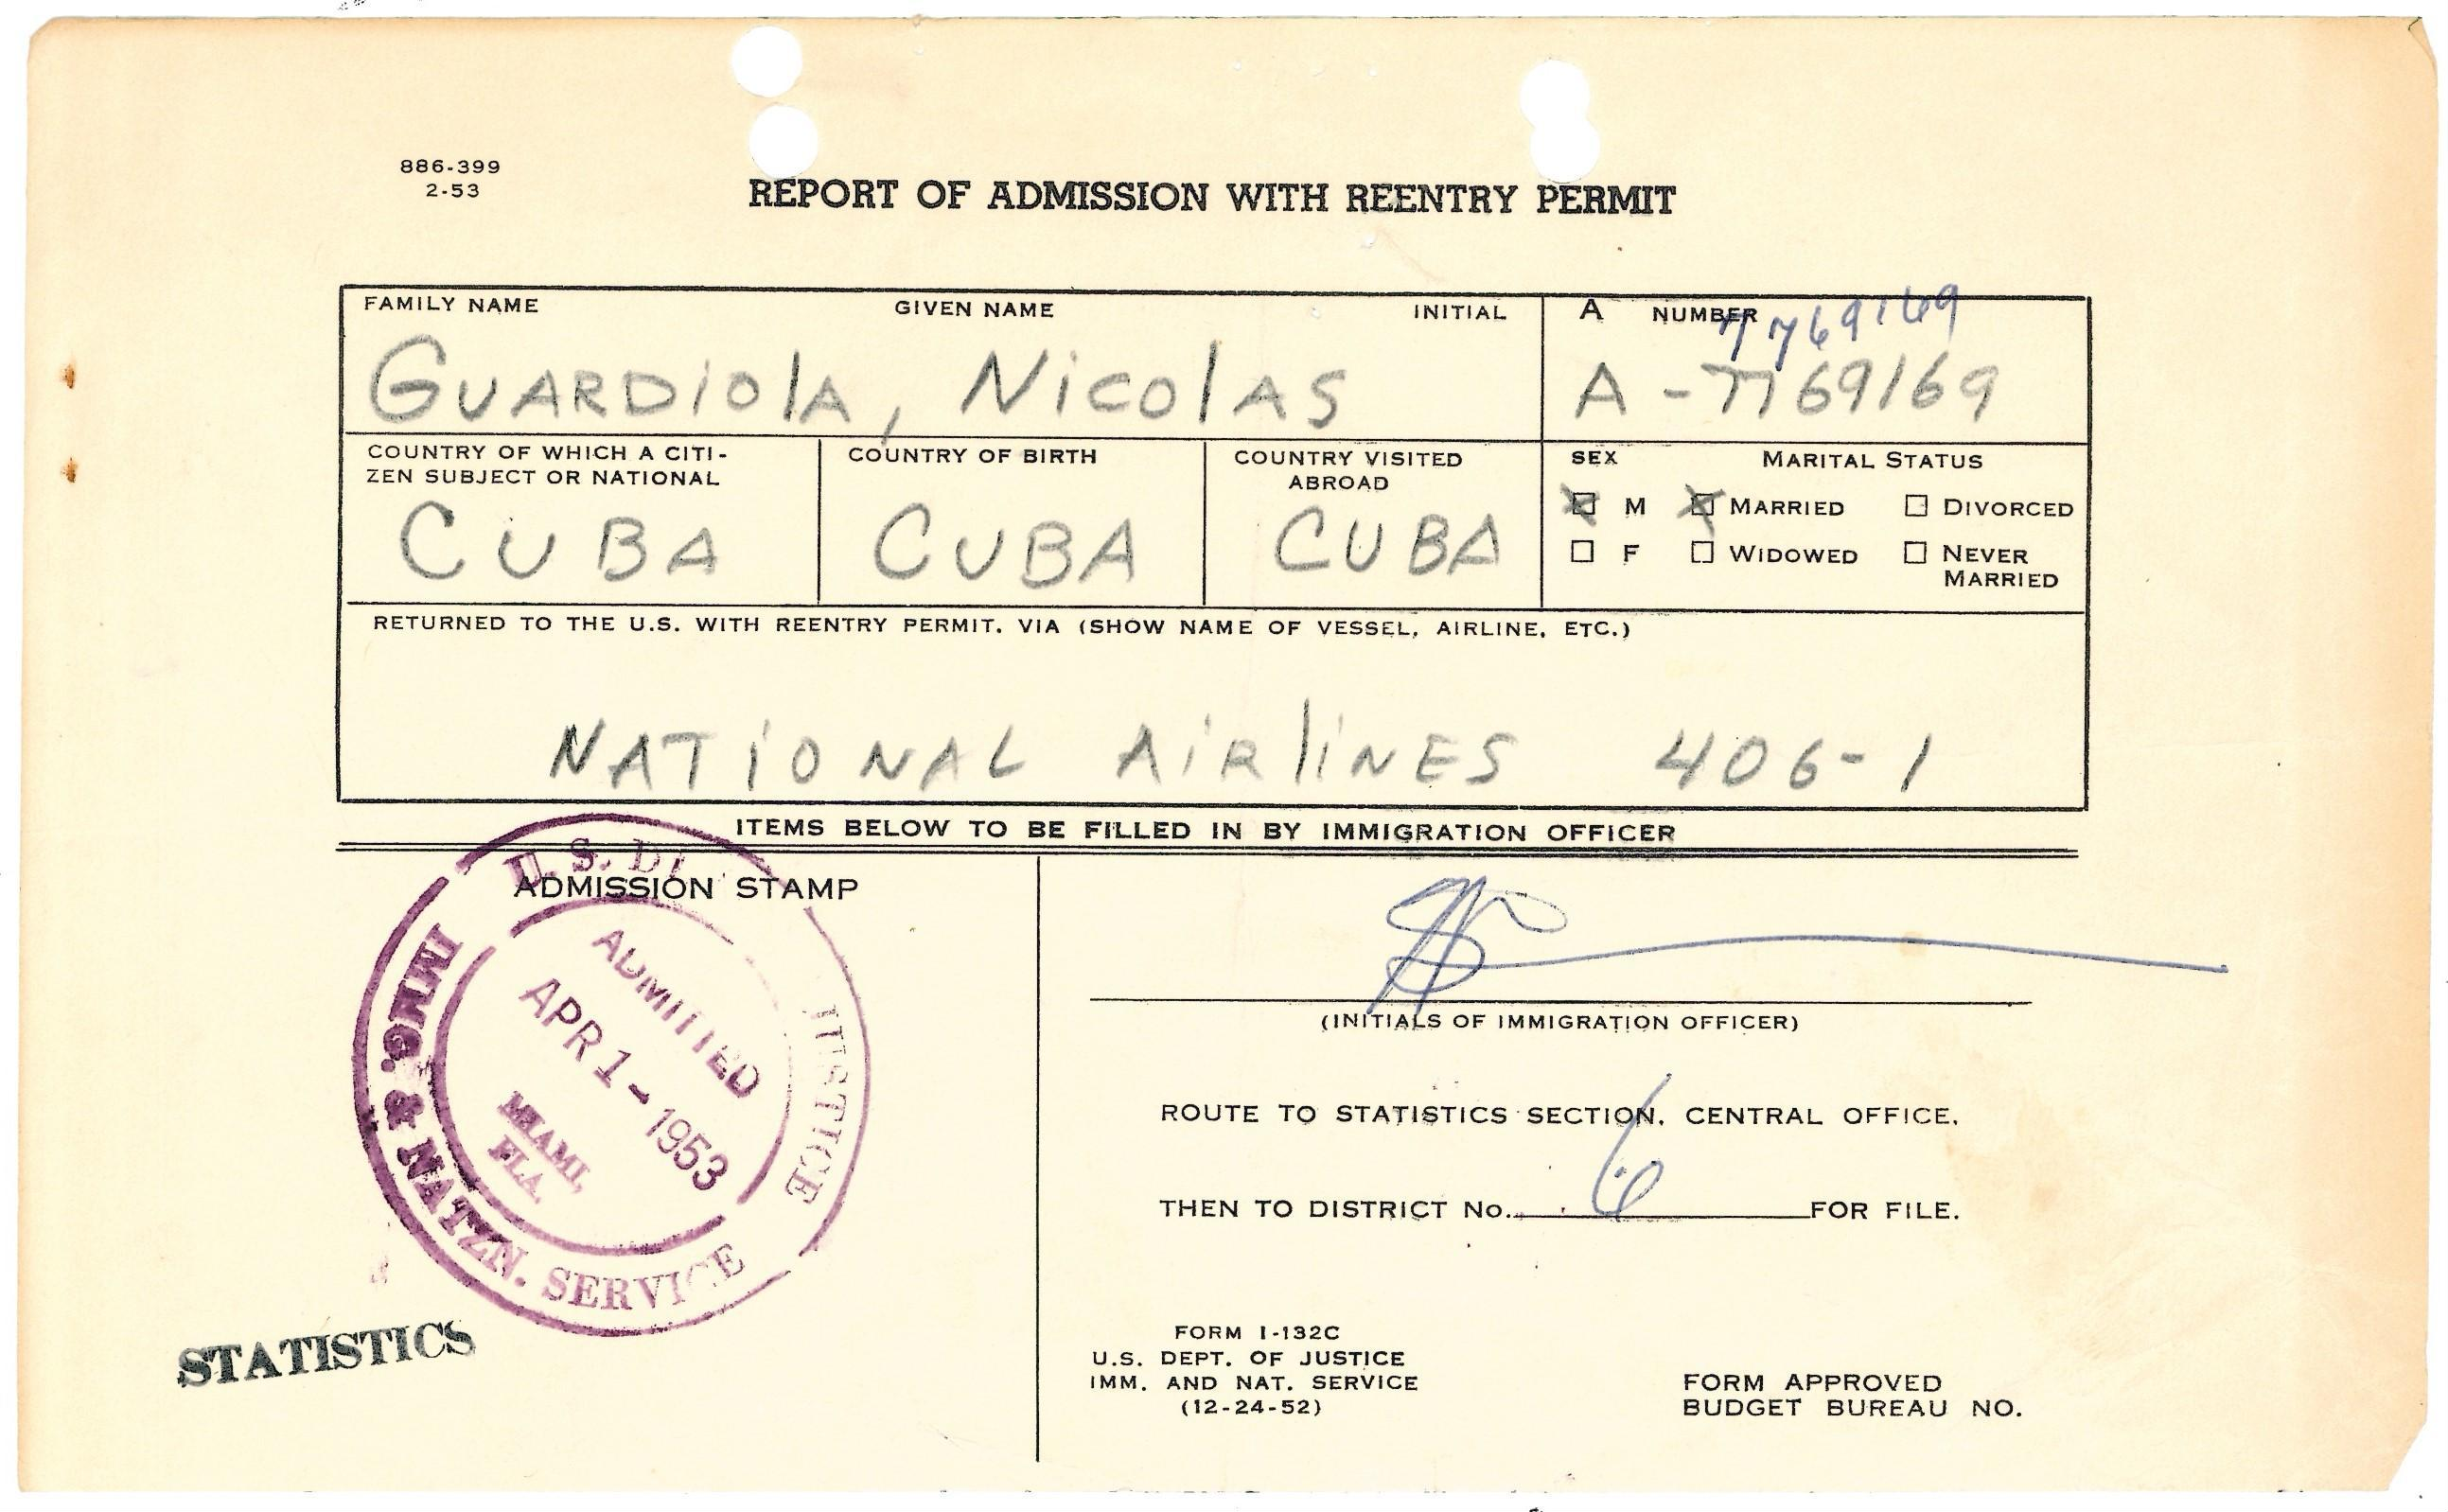 886-399
2-53
REPORT OF ADMISSION WITH REENTRY PERMIT
FAMILY NAME GIVEN NAME INITIAL
GUARDiolA, NicolAS
A NUMBER
7769169
A-7769169
COUNTRY OF WHICH A CITI-
ZEN SUBJECT OR NATIONAL
CUBA
COUNTRY OF BIRTH
CUBA
COUNTRY VISITED
ABROAD
CUBA
SEX MARITAL STATUS
M MARRIED DIVORCED
F WIDOWED NEVER
MARRIED
RETURNED TO THE U.S. WITH REENTRY PERMIT. VIA (SHOW NAME OF VESSEL, AIRLINE, ETC.)
NATiONAL AiRliNES 406-1
ITEMS BELOW TO BE FILLED IN BY IMMIGRATION OFFICER
ADMISSION STAMP
U.S. JUSTICE
IMMG. & NATZN. SERVICE
ADMITTED
APR 1 - 1953
MIAMI,
FLA.
STATISTICS
(INITIALS OF IMMIGRATION OFFICER)
ROUTE TO STATISTICS SECTION, CENTRAL OFFICE,
THEN TO DISTRICT No. 6 FOR FILE.
FORM I-132C
U.S. DEPT. OF JUSTICE
IMM. AND NAT. SERVICE
(12-24-52)
FORM APPROVED
BUDGET BUREAU NO.